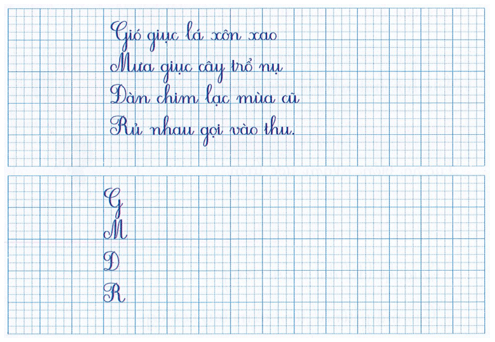 Gió giục lá xôn xao
Mưa giục cây trổ nụ
Dàn chim lạc mùa cũ
Rủ nhau gọi vào thu.
G
M
D
R